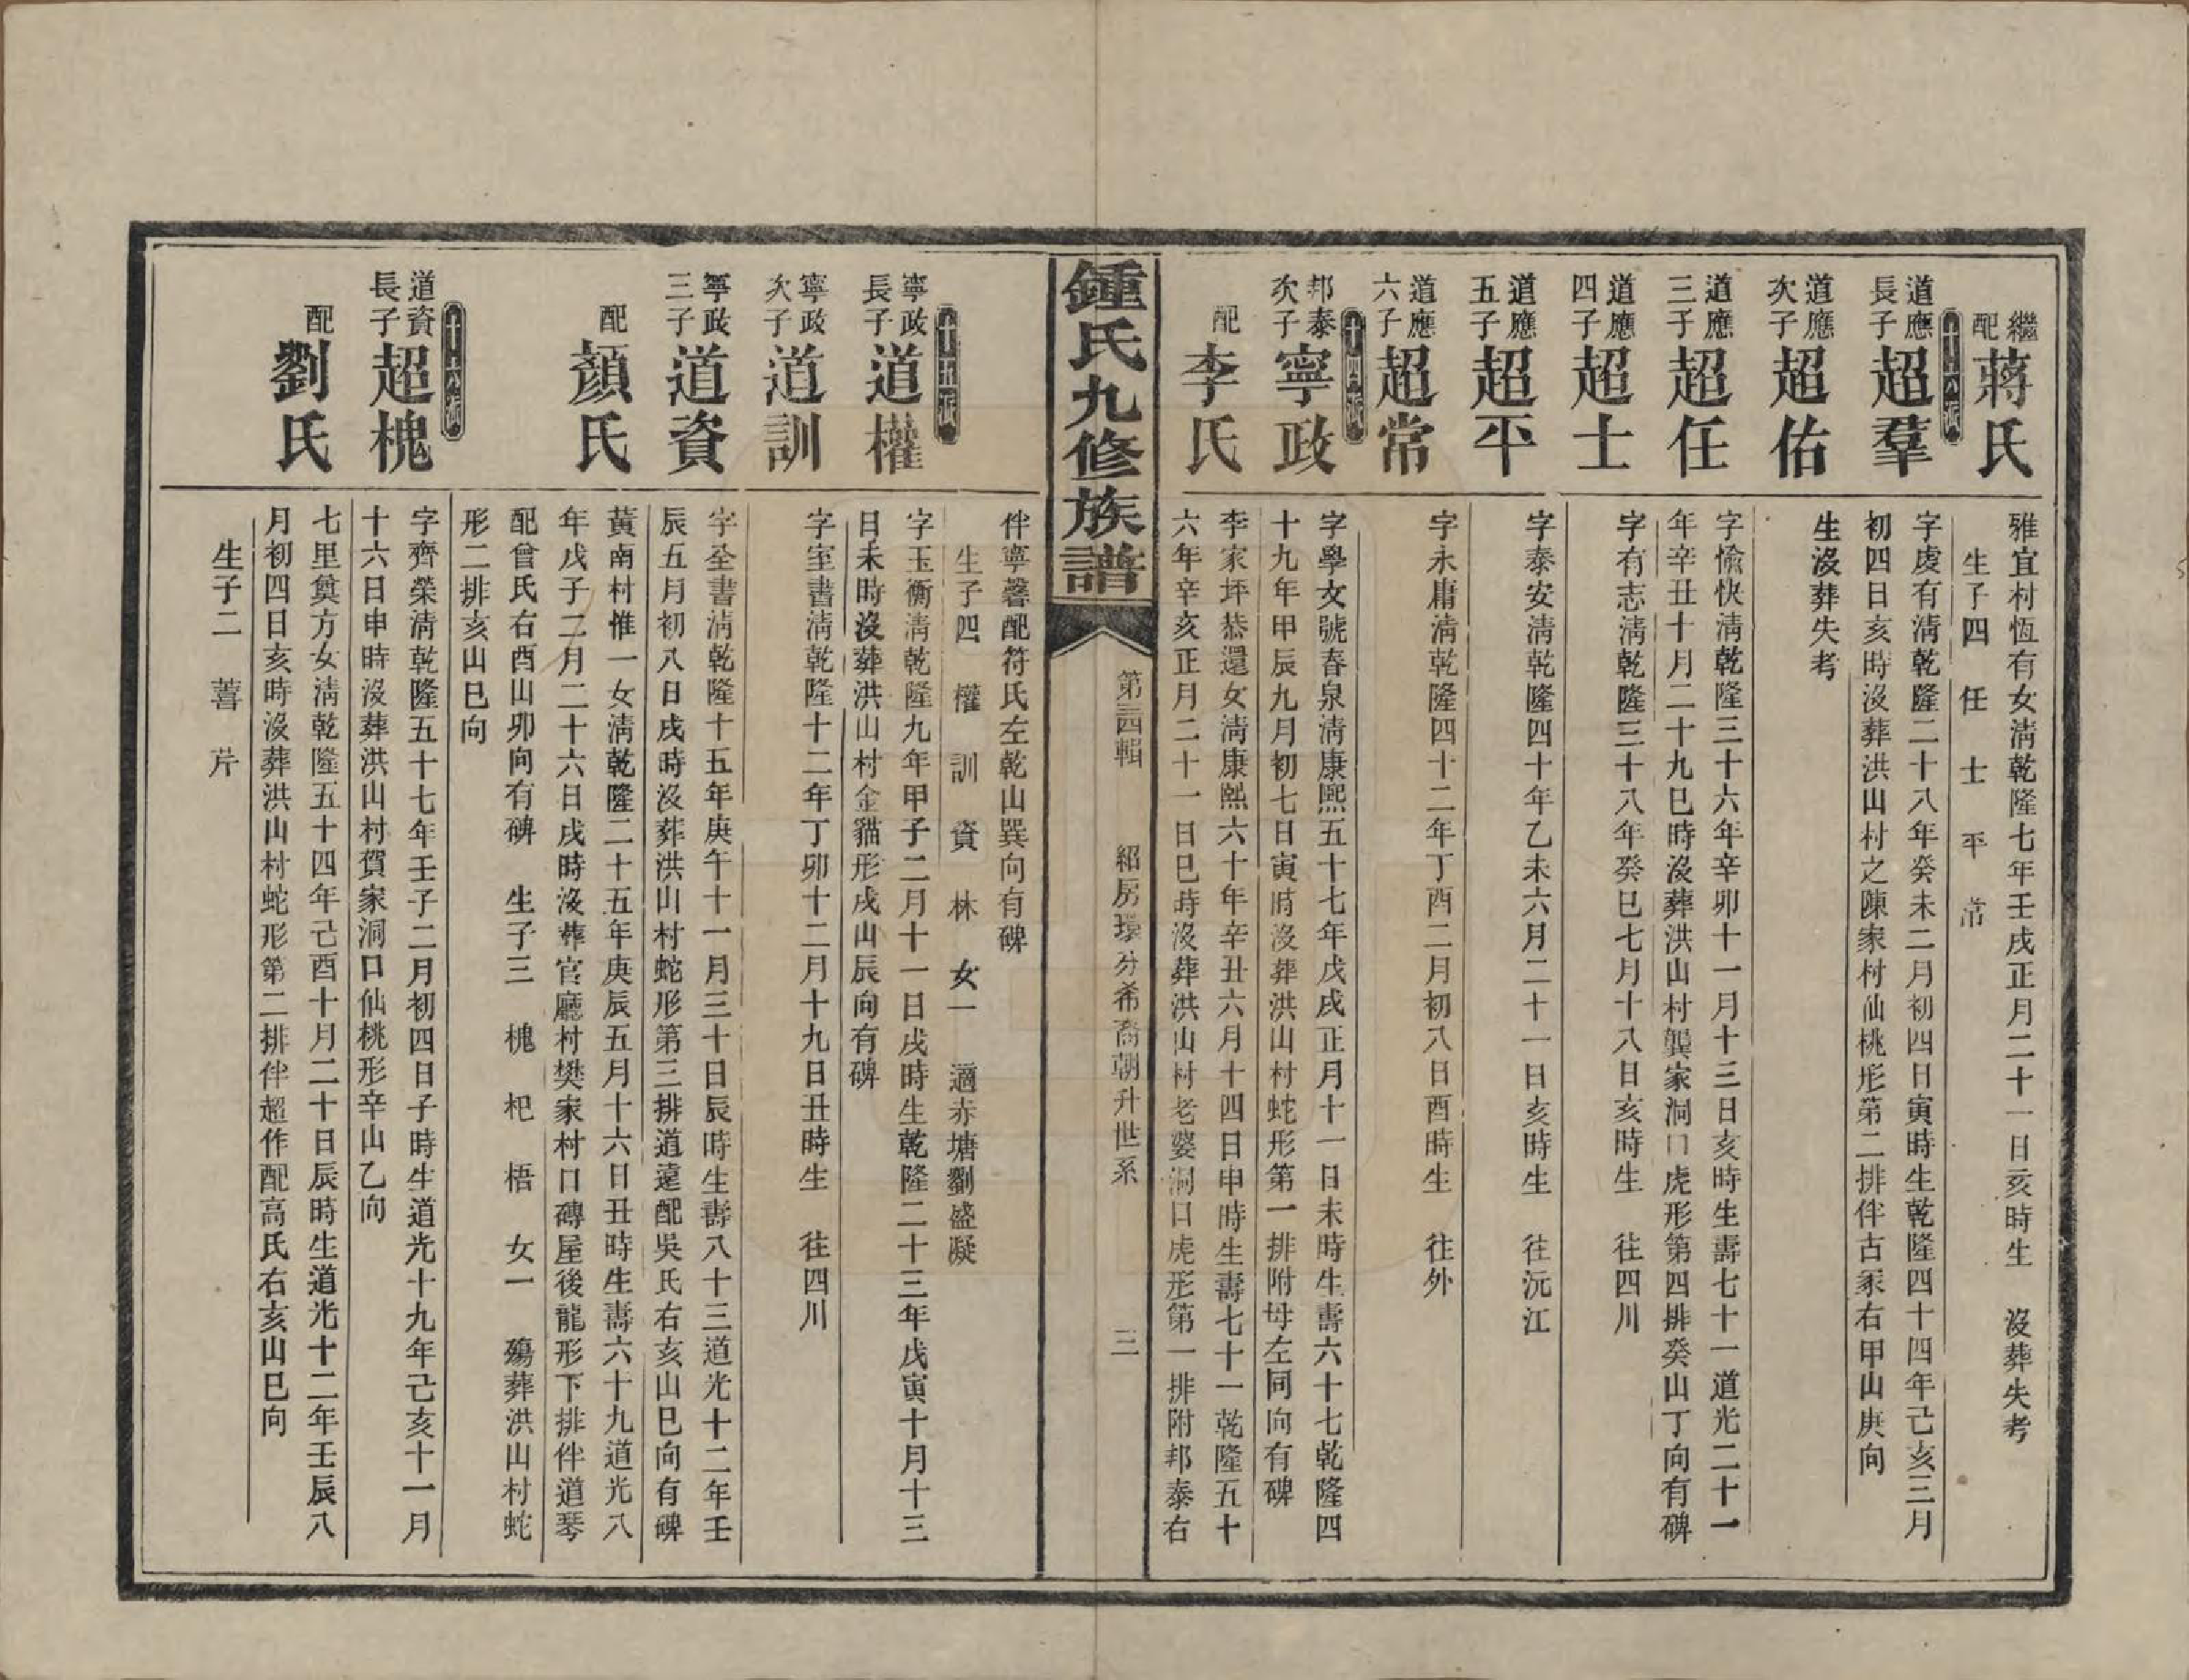 繼配
蔣氏
雅宜村恆有女淸乾隆七年壬戌正月二十一日亥時生　沒葬失考
生子四　任　士　平　常
十六派
道應長子
超羣
字虔有淸乾隆二十八年癸未二月初四日寅時生乾隆四十四年己亥三月
初四日亥時沒葬洪山村之陳家村仙桃形第二排伴古冢右甲山庚向
道應次子
超佑
生沒葬失考
道應三子
超任
字愉快淸乾隆三十六年辛卯十一月十三日亥時生壽七十一道光二十一
年辛丑十月二十九巳時沒葬洪山村龔家洞口虎形第四排癸山丁向有碑
道應四子
超士
字有志淸乾隆三十八年癸巳七月十八日亥時生　往四川
道應五子
超平
字泰安淸乾隆四十年乙未六月二十一日亥時生　往沅江
道應六子
超常
字永庸淸乾隆四十二年丁酉二月初八日酉時生　往外
十四派
邦泰次子
寧政
字學女號春泉淸康熙五十七年戊戌正月十一日未時生壽六十七乾隆四
十九年甲辰九月初七日寅時沒葬洪山村蛇形第一排附母左同向有碑
配
李氏
李家坪恭還女淸康熙六十年辛丑六月十四日申時生壽七十一乾隆五十
六年辛亥正月二十一日巳時沒葬洪山村老婆洞口虎形第一排附邦泰右
鍾氏九修族譜
第三四輯　紹房環分希裔朝升世系　三
伴寧馨配符氏左乾山巽向有碑
生子四　權　訓　資　林　女一　適赤塘劉盛凝
十五派
寧政長子
道權
字玉衡淸乾隆九年甲子二月十一日戌時生乾隆二十三年戊寅十月十三
日未時沒葬洪山村金貓形戌山辰向有碑
寧政次子
道訓
字室書淸乾隆十二年丁卯十二月十九日丑時生　往四川
寧政三子
道資
字全書淸乾隆十五年庚午十一月三十日辰時生壽八十三道光十二年壬
辰五月初八日戌時沒葬洪山村蛇形第三排道遠配吳氏右亥山巳向有碑
配
顏氏
黃南村惟一女淸乾隆二十五年庚辰五月十六日丑時生壽六十九道光八
年戊子二月二十六日戌時沒葬官廳村樊家村口磚屋後龍形下排伴道琴
配曾氏右酉山卯向有碑　生子三　槐　杞　梧　女一　殤葬洪山村蛇
形二排亥山巳向
十六派
道資長子
超槐
字齊榮淸乾隆五十七年壬子二月初四日子時生道光十九年己亥十一月
十六日申時沒葬洪山村賀家洞口仙桃形辛山乙向
配
劉氏
七里奠方女淸乾隆五十四年己酉十月二十日辰時生道光十二年壬辰八
月初四日亥時沒葬洪山村蛇形第二排伴超作配高氏右亥山巳向
生子二　菩　芹